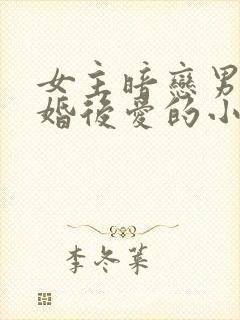 女主暗戀男
婚後愛的小
李冬葉